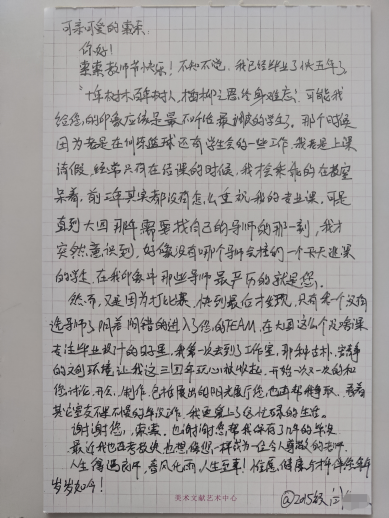 可亲可爱的栗栗:
你好!
栗栗教师节快乐!不知不觉,我已经毕业了快五年了,
“十年树木百年树人,栖梧之恩终身难忘”可能我
给您的印象应该是最不听话最调皮的学生了。那个时候
因为老是在训练篮球还有学生会的一些工作,我老是上课
请假,经常只有在结课的时候,我才会乖乖的在教室
呆着,前三年其实都没有怎么重视我的专业课,可是
直到大四那年需要找自己的导师的那一刻,我才
突然意识到,好像没有哪个导师会挂的一个天天逃课
的学生,在我印象中那些导师最严厉的就是您,
然而,又是因为打比赛,快到最后才发现,只有我一个没有
选导师了,阴差阳错的进入了您的TEAM,在大四这么个没啥课
专注毕业设计的日子里,我第一次去到了工作室,那种古朴、安静
的文创环境让我这三四年玩心被收起,开始一次又一次的和
您讨论、开会、制作,包括展出的阳光展厅,您也再帮我争取,看着
其它室友不紧不慢的毕设工作,我更爱上了这忙碌的生活。
谢谢您,栗栗,也谢谢您帮我保存了几年的毕设
最近我也在考教资,也想像您一样成为一位令人尊敬的老师
人生得遇良师,春风化雨,人生至幸!惟愿,健康与才华伴您年年
岁岁如今!
@2015级
美术文献艺术中心